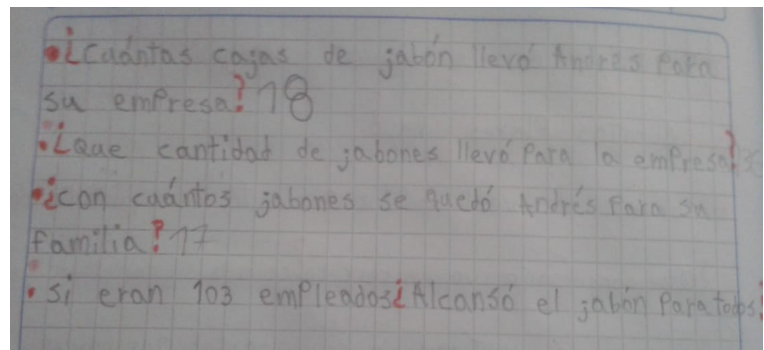 •¿cuántas cajas de jabón llevó Andrés Para
su empresa? 18
•¿Que cantidad de jabones llevó Para la empresa?
•¿con cuántos jabones se quedó Andrés Para su
familia? 17
•si eran 103 empleados¿Alcansó el jabón Para todos?